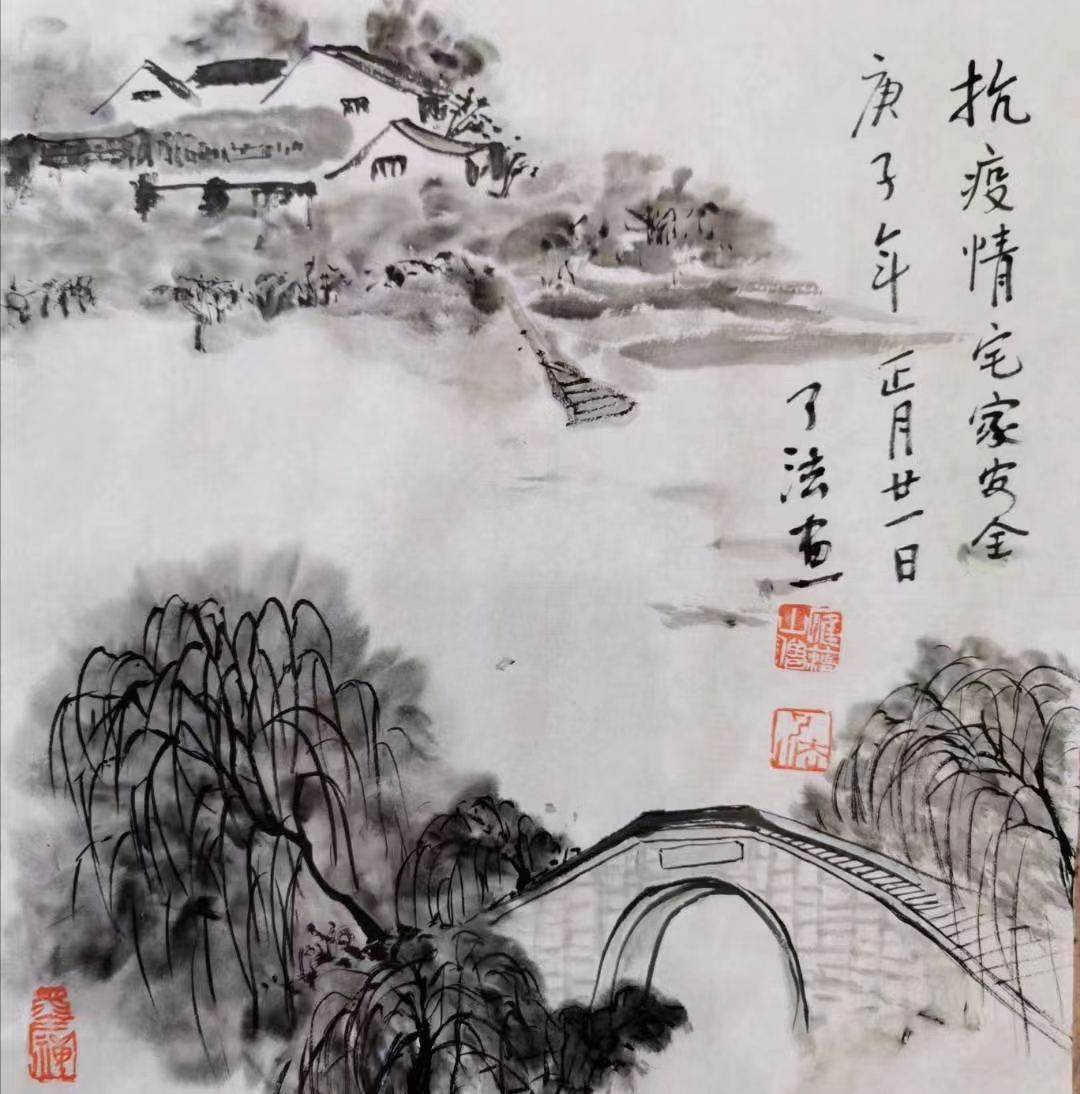 抗疫情宅家安全
庚子年正月廿一日
了法画
了法